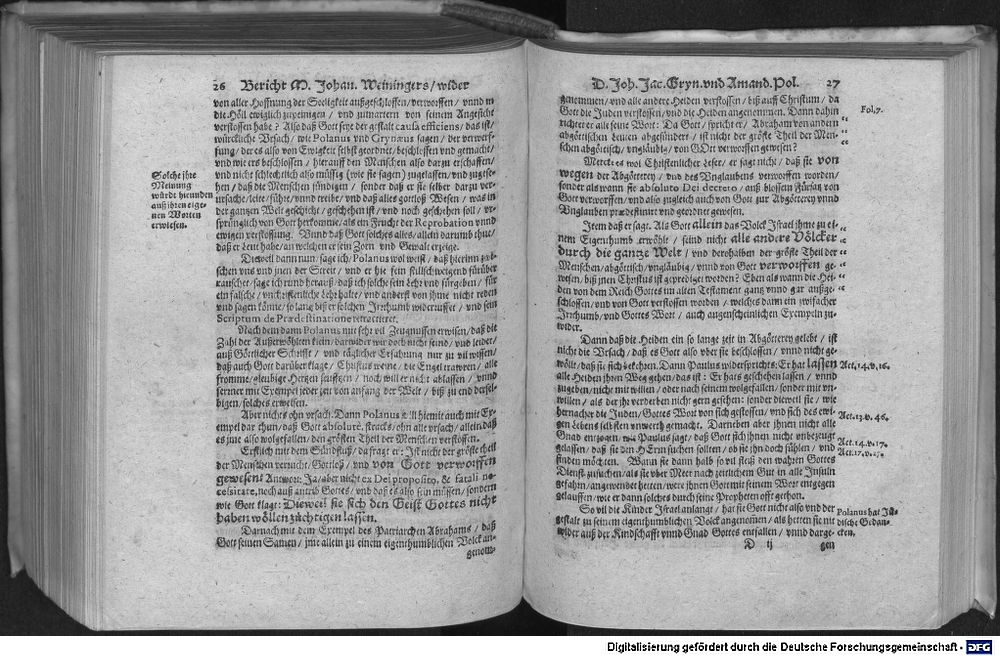 26 Bericht M. Johan. Weiningers/ wider
von aller Hoffnung der Seeligkeit außgeschlossen/ verworffen/ vnnd in
die Höll ewiglich zupeinigen/ vnd zumartern von seinem Angesicht
verstossen habe? Also daß Gott seye der gestalt causa efficiens/ das ist/
würckliche Vrsach/ wie Polanus vnd Grynæus sagen/ der verwerf-
fung/ der es also von Ewigkeit selbst geordnet/ beschlossen vnd gemacht/
vnd wie ers beschlossen/ hierauff den Menschen also darzu erschaffen/
vnd nicht schlechtlich also müssig (wie sie sagen) zugelassen/ vnd zugese-
Solche jhr
Meinung
würdt hieunden
auß jhren eige-
nen Worten
erwiesen.
hen/ daß die Menschen sündigen/ sonder daß er sie selber darzu ver-
ursache/ leite/ führe/ vnnd treibe/ vnd daß alles gottloß Wesen/ was in
der gantzen Welt geschicht/ geschehen ist/ vnd noch geschehen soll/ vr-
sprünglich von Gott herkomme/ als ein Frucht der Reprobation vnnd
ewigen verstossung. Vnnd daß Gott solches alles/ allein darumb thut/
daß er Leut habe/ an welchen er sein Zorn vnd Gewalt erzeige.
Dieweil dann nun/ sage ich/ Polanus wol weist/ daß hierinn zwi-
schen vns vnd jnen der Streit/ vnd er hie sein stillschweigend fürüber
rauschet/ sage ich rund herauß/ daß ich solche sein Lehr vnd fürgeben/ für
ein falsche/ vnchristenliche Lehr halte/ vnd anderst von jhme nicht reden
vnd sagen könne/ so lang biß er solchen Irrthumb widerruffet/ vnd sein
Scriptum de Prædestinatione retractieret.
Nach dem dann Polanus mit sehr vil Zeugnussen erwisen/ daß die
Zahl der Außerwöhlten klein/ darwider wir doch nicht seind/ vnd leider/
auß Göttlicher Schrifft/ vnd täglicher Erfahrung nur zu vil wissen/
daß auch Gott darüber klage/ Christus weine/ die Engel trawren/ alle
fromme/ gleubige Hertzen seufftzen/ noch will er nicht ablassen/ vnnd
ferrner mit Exempel jeder zeit von anfang der Welt/ biß zu end dersel-
bigen/ solches erweisen.
Aber nicht ohn vrsach. Dann Polanus will hiemit auch mit Ex-
empel dar thun/ daß Gott absolutè, stracks/ ohn alle vrsach/ allein daß
es jme also wolgefallen/ den grösten Theil der Menschen verstossen.
Erstlich mit dem Sündfluß/ da fragt er: Ist nicht der gröste theil
der Menschen verrucht/ Gottloß/ vnd von Gott verworffen
gewesen? Antwort: Ja/ aber nicht ex Dei proposito, & fatali ne-
cessitate, noch auß antrib Gottes/ vnd daß es also sein müssen/ sondern
wie Gott klagt: Dieweil sie sich den Geist Gottes nicht
haben wöllen züchtigen lassen.
Darnach mit dem Exempel des Patriarchen Abrahams/ daß
Gott seinen Samen/ jme allein zu einem eigenthumblichen Volck an-
genom-
D. Joh. Jac. Gryn. vnd Amand. Pol. 27
genommen/ vnd alle andere Heiden verstossen/ biß auff Christum/ da
Gott die Juden verstossen/ vnd die Heiden angenommen. Dann dahin
Fol. 7.
richtet er alle seine Wort: Da Gott/ spricht er/ Abraham von andern
abgöttischen Leuten abgesündert/ ist nicht der gröste Theil der Men-
schen abgöttisch/ vngläubig/ von GOtt verworffen gewesen?
Mercke es wol Christenlicher Leser/ er sagt nicht/ daß sie von
wegen der Abgötterey/ vnd des Vnglaubens verworffen worden/
sonder als wann sie absoluto Dei decreto/ auß blossem Fürsatz von
Gott verworffen/ vnd also zugleich auch von Gott zur Abgötterey vnnd
Vnglauben prædestiniert vnd geordnet gewesen.
Item daß er sagt. Als Gott allein das Volck Israel jhme zu ei-
nem Eigenthumb erwöhlt/ seind nicht alle andere Völcker
durch die gantze Welt/ vnd derohalben der gröste Theil der
Menschen/ abgöttisch/ vngläubig/ vnnd von Gott verworffen ge-
wesen/ biß jnen Christus ist geprediget worden? Eben als wann die Hei-
den von dem Reich Gottes im alten Testament gantz vnnd gar außge-
schlossen/ vnd von Gott verstossen worden/ welches dann ein zwifacher
Irrthumb/ vnd Gottes Wort/ auch augenscheinlichen Exempeln zu-
wider.
Dann daß die Heiden ein so lange zeit in Abgötterey gelebt/ ist
nicht die Vrsach/ daß es Gott also vber sie beschlossen/ vnnd nicht ge-
wöllt/ daß sie sich bekehren. Dann Paulus widersprichts: Er hat lassen
Act. 14. v. 16.
alle Heiden jhren Weg gehen/ das ist: Er hats geschehen lassen/ vnnd
zugeben/ nicht mit willen/ oder nach seinem wolgefallen/ sonder mit vn-
willen/ als der jhr verderben nicht gern gesehen: sonder dieweil sie/ wie
hernacher die Juden/ Gottes Wort von sich gestossen/ vnd sich des ewi-
Act. 13. v. 46.
gen Lebens selbsten vnwerth gemacht. Darneben aber jhnen nicht alle
Gnad entzogen/ wie Paulus sagt/ daß Gott sich jhnen nicht vnbezeugt
Act. 14. v. 17.
gelassen/ daß sie den HErrn suchen sollten/ ob sie jhn doch fühlen/ vnd
Act. 17. v. 27.
finden möchten. Wann sie dann halb so vil fleiß den wahren Gottes
Dienst zusuchen/ als sie vber Meer nach zeitlichem Gut in alle Insuln
gefahrn/ angewendet hetten/ were jhnen Gott mit seinem Wort entgegen
geloffen/ wie er dann solches durch seine Propheten offt gethon.
So vil die Kinder Israel anlangt/ hat sie Gott nicht also vnd der
Polanus hat Jü-
dische Gedan-
cken.
gestalt zu seinem eigenthumblichen Volck angenomen/ als hetten sie nit
wider auß der Kindschafft vnnd Gnad Gottes entfallen/ vnnd darge-
D ij gen
Digitalisierung gefördert durch die Deutsche Forschungsgemeinschaft - DFG